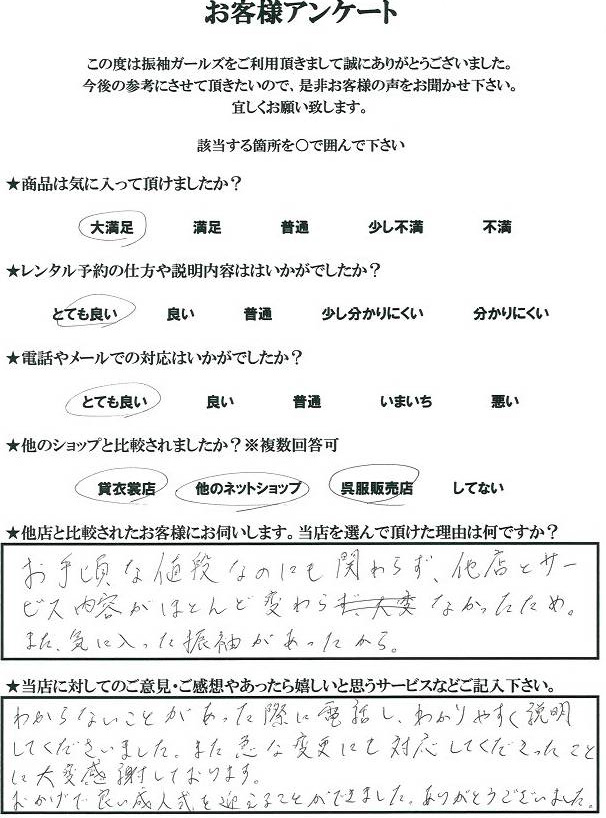 お客様アンケート
この度は振袖ガールズをご利用頂きまして誠にありがとうございました。
今後の参考にさせて頂きたいので、是非お客様の声をお聞かせ下さい。
宜しくお願い致します。
該当する箇所を〇で囲んで下さい
★商品は気に入って頂けましたか？
大満足 満足 普通 少し不満 不満
★レンタル予約の仕方や説明内容ははいかがでしたか？
とても良い 良い 普通 少し分かりにくい 分かりにくい
★電話やメールでの対応はいかがでしたか？
とても良い 良い 普通 いまいち 悪い
★他のショップと比較されましたか？※複数回答可
貸衣裳店 他のネットショップ 呉服販売店 してない
★他店と比較されたお客様にお伺いします。当店を選んで頂けた理由は何ですか？
お手頃な値段なのにも関わらず、他店とサー
ビス内容がほとんど変わらなかったため。
また、気に入った振袖があったから。
★当店に対してのご意見・ご感想やあったら嬉しいと思うサービスなどご記入下さい。
わからないことがあった際に電話し、わかりやすく説明
してくださいました。また急な変更にも対応してくださったこと
に大変感謝しております。
おかげで良い成人式を迎えることができました。ありがとうございました。